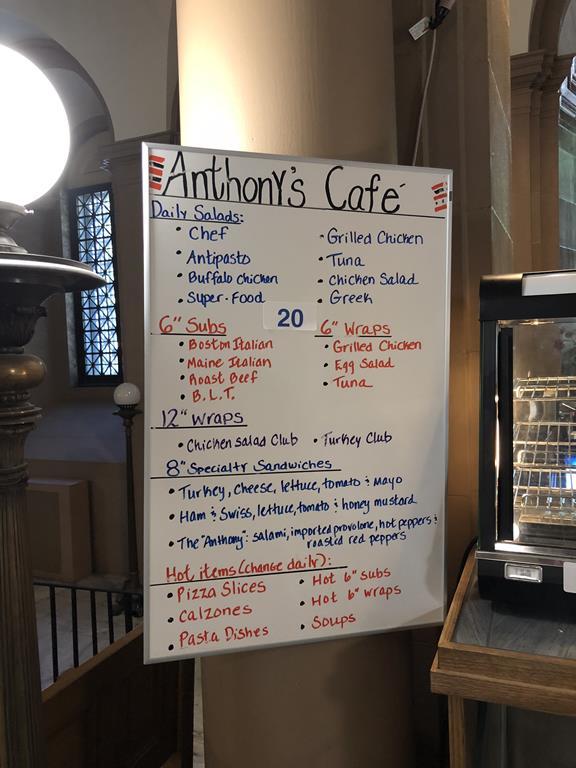 Anthony's Café
Daily Salads:
• Chef
• Antipasto
• Buffalo Chicken
• Super-Food
• Grilled Chicken
• Tuna
• Chicken Salad
• Greek
20
6" Subs
• Boston Italian
• Maine Italian
• Roast Beef
• B.L.T.
6" Wraps
• Grilled Chicken
• Egg Salad
• Tuna
12" Wraps
• Chicken salad Club • Turkey Club
8" Specialty Sandwiches
• Turkey, Cheese, lettuce, tomato & Mayo
• Ham & Swiss, lettuce, tomato & honey mustard
• The "Anthony": salami, imported provolone, hot peppers &
roasted red peppers
Hot items (change daily):
• Pizza Slices
• Calzones
• Pasta Dishes
• Hot 6" subs
• Hot 6" wraps
• Soups